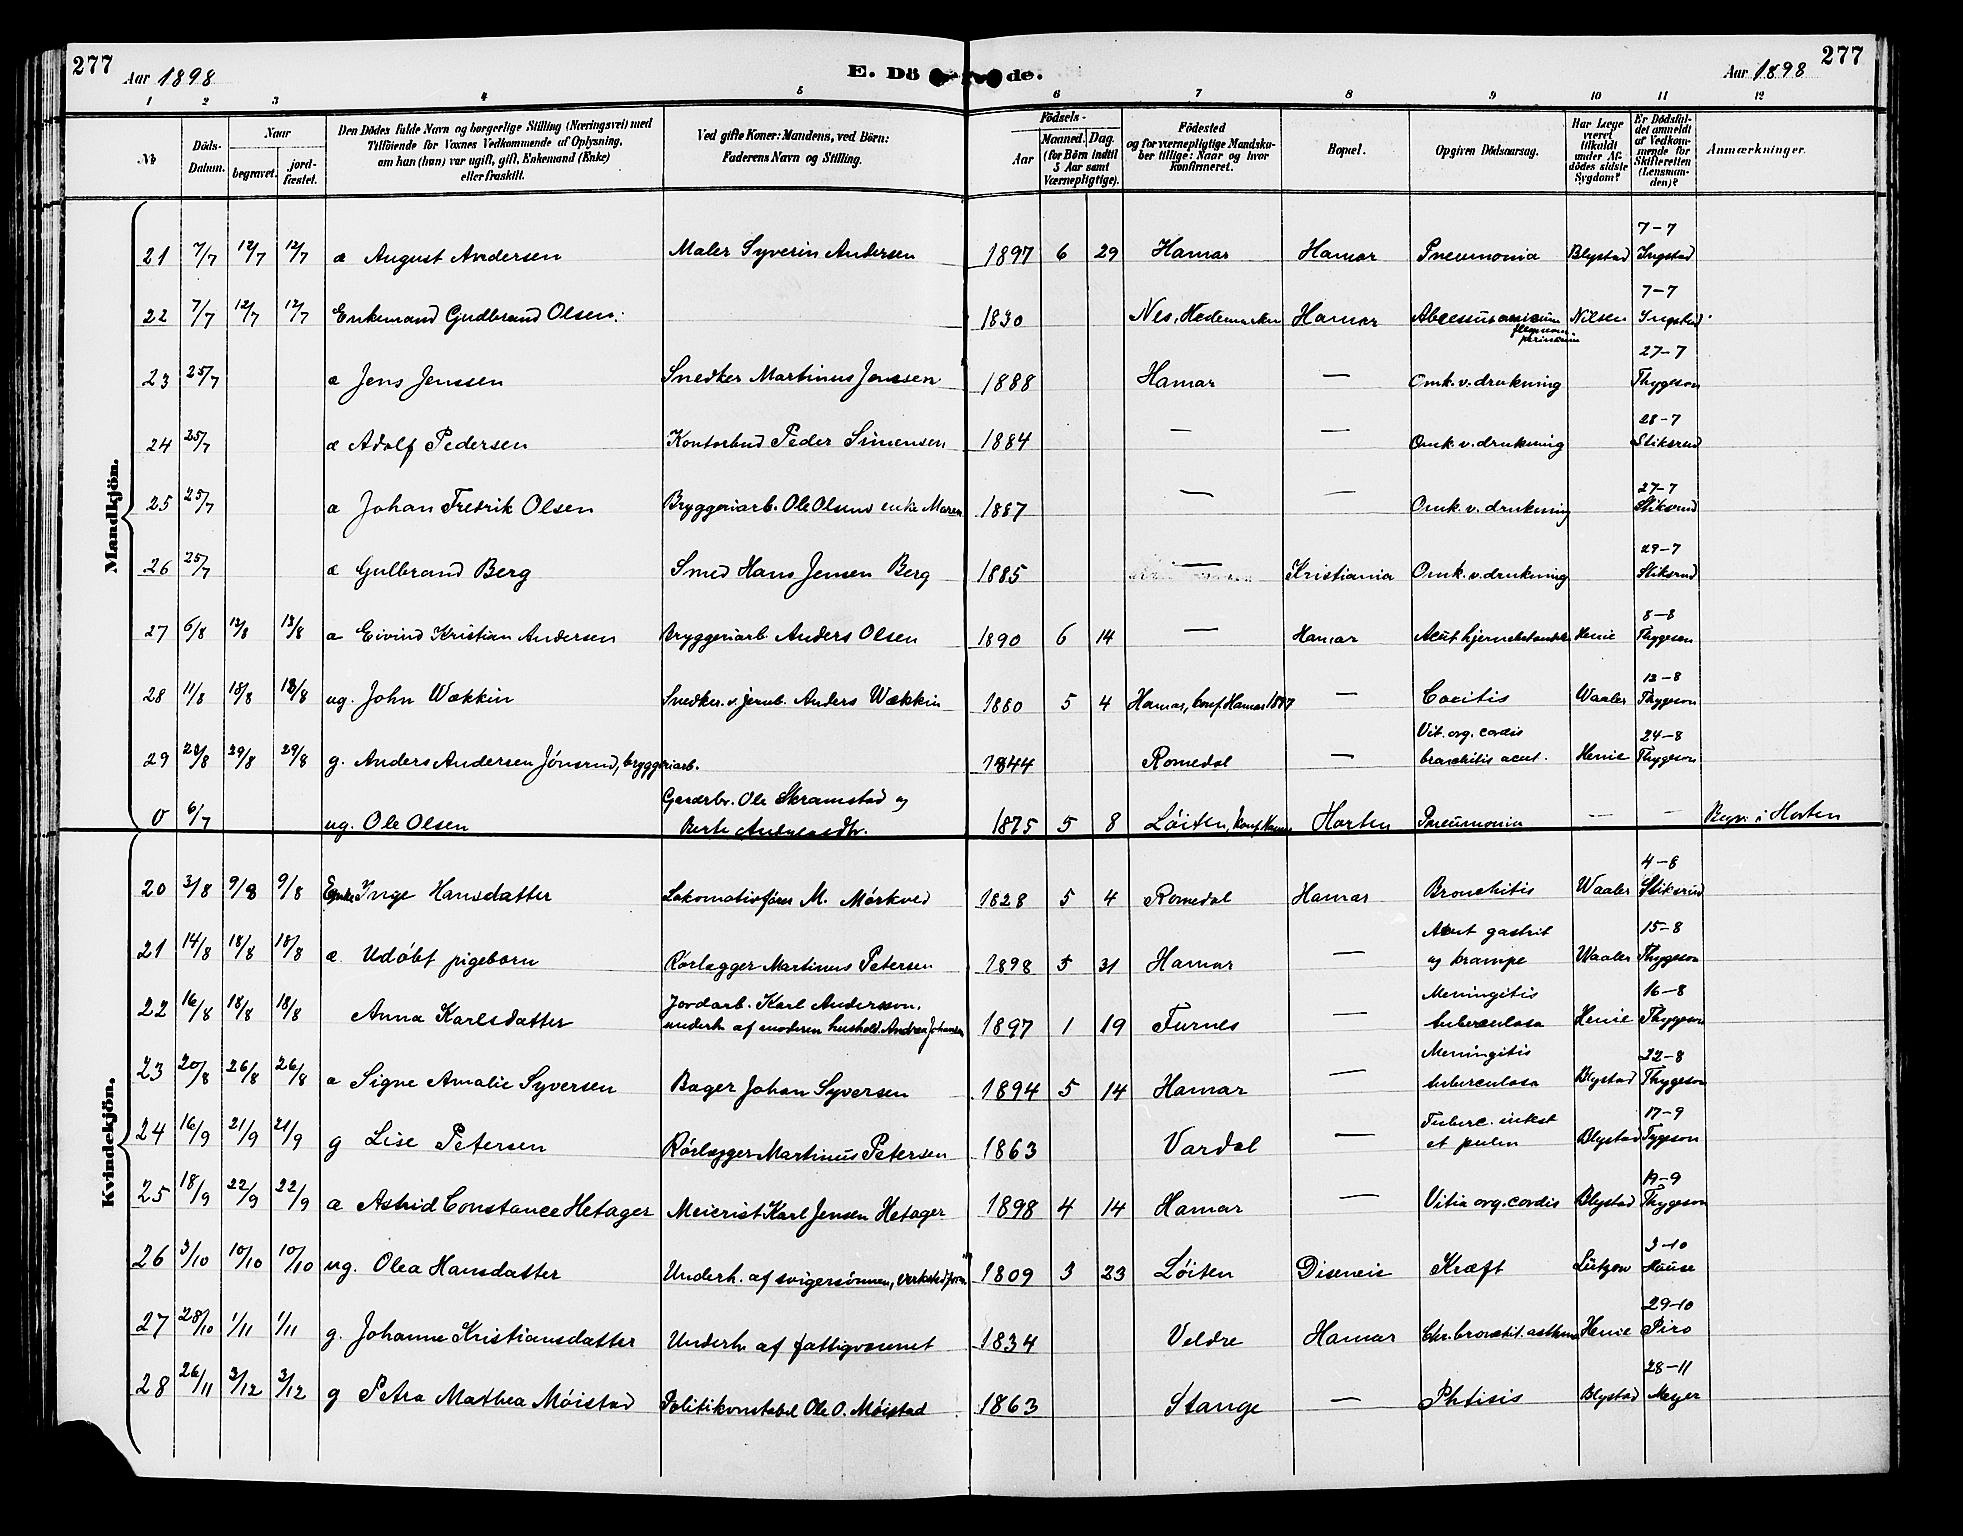 277
Aar 1898
E. Dö de.
Aar 1898
277
1 2 3 4 5 6 7 8 9 10 11 12
No
Döds-Datum.
Naar
begravet.
jord-fæstet.
Den Dödes fulde Navn og borgerlige Stilling (Næringsvei) med
Tilföiende for Voxnes Vedkommende af Oplysning,
om han (hun) var ugift, gift, Enkemand (Enke)
eller fraskilt.
Ved gifte Koner: Mandens, ved Börn:
Faderens Navn og Stilling.
Födsels-
Aar
Maaned. Dag.
(for Börn indtil
5 Aar samt
Værnepligtige).
Födested
og for værnepligtige Mandska-
ber tillige: Naar og hvor
konfirmeret.
Bopæl.
Opgiven Dödsaarsag.
Har Læge
været
tilkaldt
under Af-
dödes sidste
Sygdom?
Er Dödsfal-
det anmeldt
af Vedkom-
mende for
Skifteretten
(Lensman-
den)?
Anmærkninger.
Mandkjön.
21 7/7 12/7 12/7 a August Andersen Maler Syverin Andersen 1897 6 29 Hamar Hamar Pneumonia Blystad 7-7 Ingstad
22 7/7 12/7 12/7 Enkemand Gudbrand Olsen. 1830 Nes, Hedemarken Hamar Abcessus Nilsen 7-7 Ingstad
23 25/7 a Jens Jenssen Snedker Martinus Jenssen 1888 Hamar — Omk. v. drukning 27-7 Thygeson
24 25/7 a Adolf Pedersen Kontorbud Peder Simensen 1884 — — Omk. v. drukning 28-7 Sliksrud
25 25/7 a Johan Fredrik Olsen Bryggeriarb. Ole Olsens enke Maren 1887 — — Omk. v. drukning 27-7 Sliksrud
26 25/7 a Gulbrand Berg Smed Hans Jensen Berg 1885 — Kristiania Omk. v. drukning 29-7 Sliksrud
27 6/8 13/8 13/8 a Eivind Kristian Andersen Bryggeriarb Anders Olsen 1890 6 14 — Hamar Acut Henie 8-8 Thygeson
28 11/8 18/8 18/8 ug. John Wækkin Snedker v. jernb. Anders Wækkin 1880 5 4 Hamar, conf. Hamar — Coxitis Waaler 13-8 Thygeson
29 29/8 29/8 g. Anders Andersen Jónsrud, bryggeriarb. 1844 Romedal — Vit. org. cordis bronchitis acut. Henie 24-8 Thygeson
0 6/7 ug. Ole Olsen Ole Skramstad og Berte 1875 5 8 Löiten, konf. Horten Pneumonia — — Begr. i Horten
Kvindekjön.
20 3/8 9/8 9/8 Enke Inge Hansdatter Lokomotivfører M. Mørkved 1828 5 4 Romedal Hamar Bronchitis Waaler 4-8 Sliksrud
21 14/8 18/8 18/8 a Udöbt pigebarn Rørlægger Martinus Petersen 1898 5 31 Hamar — Acut gastrit og krampe Waaler 15-8 Thygeson
22 16/8 18/8 18/8 Anna Karlsdatter Jordarb. Karl Anderson, underh. af moderen hushold. Andrea Johansen 1897 1 19 Furnes — Meningitis tuberculosa Henie 16-8 Thygeson
23 20/8 26/8 26/8 a Signe Amalie Syversen Bager Johan Syversen 1894 5 14 Hamar — Meningitis tuberculosa Blystad 22-8 Thygeson
24 16/9 21/9 21/9 g Lise Petersen Rørlægger Martinus Petersen 1863 Vardal — Tuberc. et pulm Blystad 17-9 Tygeson
25 18/9 22/9 22/9 a Astrid Constance Hetager Meierist Karl Jensen Hetager 1898 4 14 Hamar — Vitia org. cordis Blystad 19-9 Thygeson
26 3/10 10/10 10/10 ug. Olea Hansdatter Underh. af svigersønnen, 1809 3 23 Löiten Kræft Lützow 3-10
27 28/10 1/11 1/11 g. Johanne Kristiansdatter Underh af fattigvæsenet 1834 Veldre Hamar Chr. Henie 29-10 Piro
28 26/11 3/12 3/12 g Petra Mathea Möistad Politikonstabel Ole O. Möistad 1863 Stange — Phtisis Blystad 28-11 Meyer